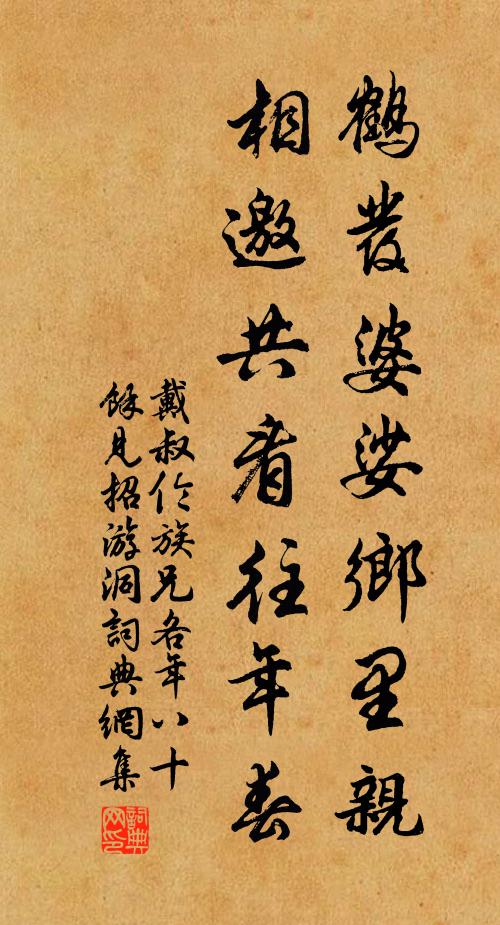 鶴發婆娑鄉里親
相邀共看往年春
戴叔伦族兄各年八十
餘見招游洞詞典網集
詞典网印